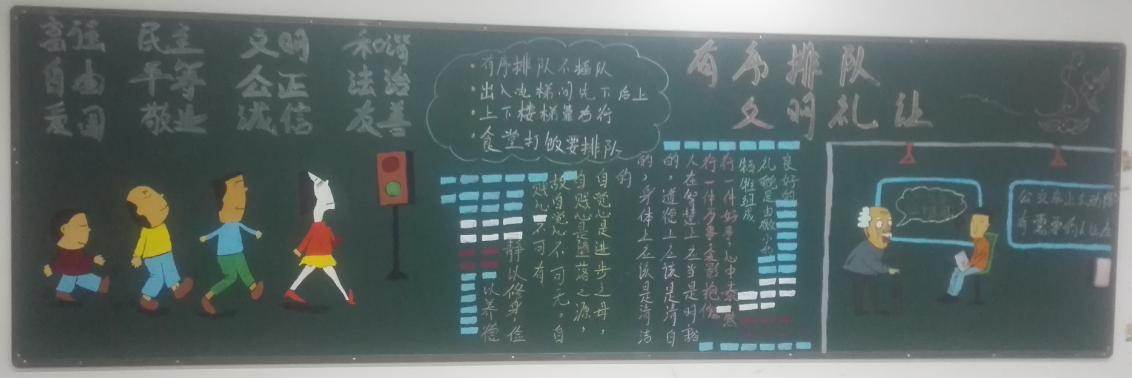 富强 民主 文明 和谐
自由 平等 公正 法治
爱国 敬业 诚信 友善
·有序排队不插队
·出入电梯间先下后上
·上下楼梯靠右行
·食堂打饭要排队
有序排队
文明礼让
良好的
礼貌是由微小的
牺牲组成
行一件好事,心中泰然
行一件歹事,衾影抱愧
人在智慧上应当是明豁
的,道德上应该是清白
的,身体上应该是清洁
的
自觉心是进步之母,
自贱心是堕落之源,
故自觉心不可无,自
贱心不可有
静以修身,俭
以养德
公交车上主动给
有需要的人让座